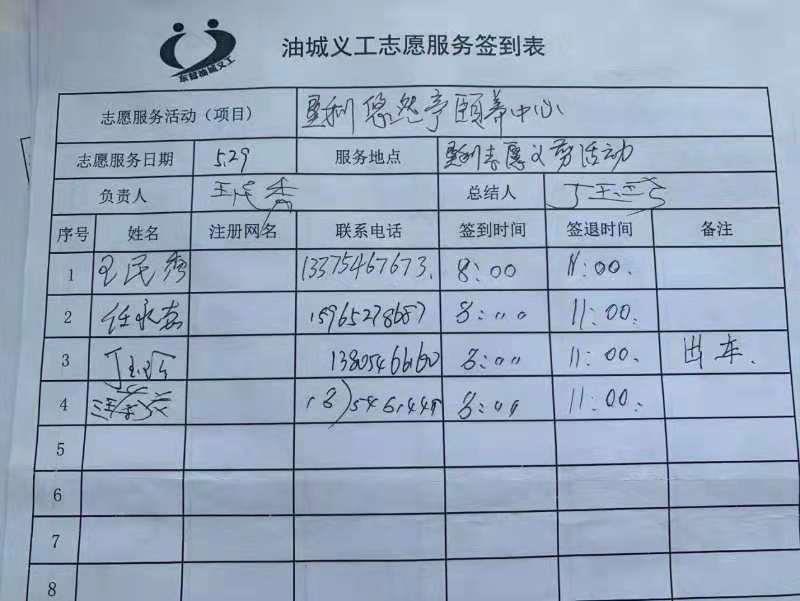 东营油城义工
油城义工志愿服务签到表
志愿服务活动（项目） 垦利悠然亭颐养中心
志愿服务日期 5.29 服务地点 垦利志愿义剪活动
负责人 王民秀 总结人
序号 姓名 注册网名 联系电话 签到时间 签退时间 备注
1 王民秀 13375467673. 8:00 11:00.
2 任永春 15965278687 8:〃〃 11:00.
3 13805466160 8:〃〃 11:00. 出车.
4 8:〃〃 11:00.
5
6
7
8